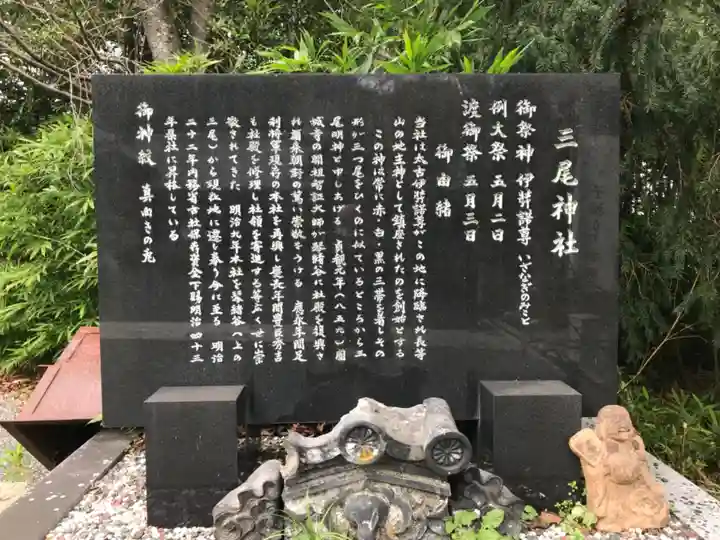 三尾神社
御祭神 伊弉諾尊 いざなぎのみこと
例大祭 五月二日
渡御祭 五月三日
御由緒
当社は太古伊弉諾尊がこの地に降臨され長等
山の地主神として鎮まされたのを創始とする
この神は常に赤・白・黒の三帯を着しその
形が三つ尾をひくのに似ているところから三
尾明神と申しあげる 貞観元年(八五九)園
城寺の開祖智証大師が琴緒谷に社殿を復興さ
れ源頼朝の篤い崇敬をうける 應永年間足
利将軍現存の本社を再興し慶長年間豊臣秀吉
も社殿を修理し社領を寄進する等代々世に崇
敬されてきた 明治九年本社を琴緒谷(上の
三尾)から現社地に遷し奉り今に至る 明治
二十二年内務省古社保存資金下賜明治四十三
年県社に昇格している
御神紋 真向きの兎